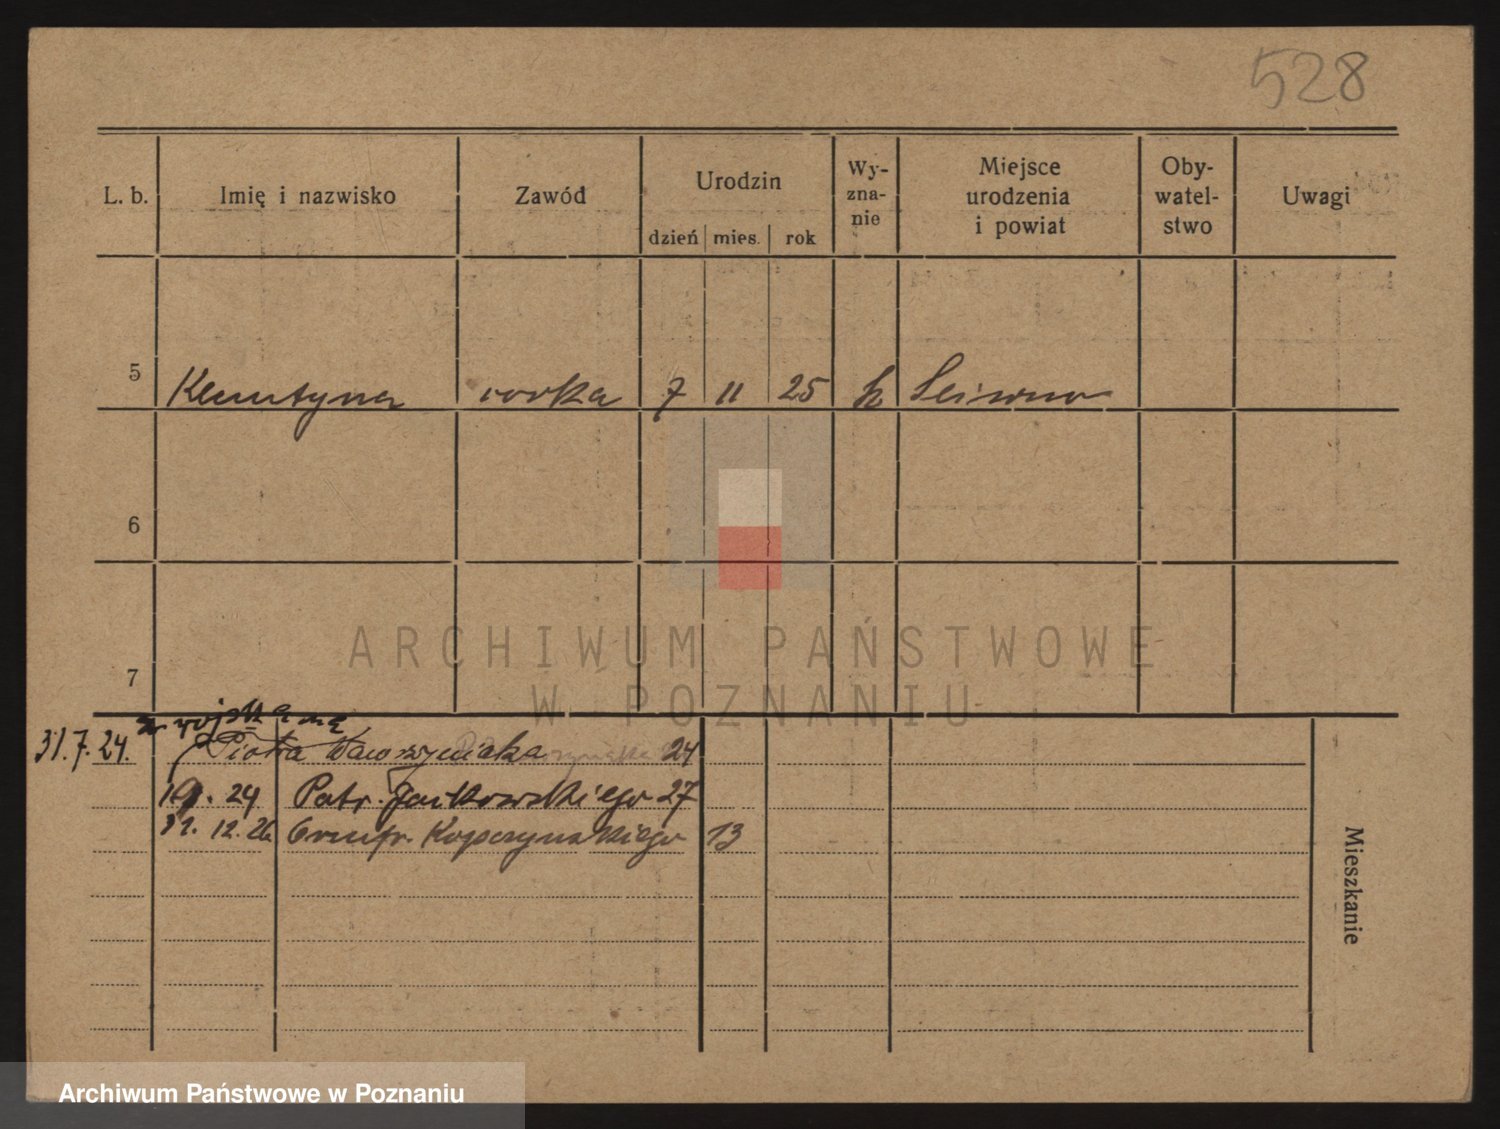 528
L. b. Imię i nazwisko Zawód Urodzin Wy-zna-nie Miejsce urodzenia i powiat Oby-watel-stwo Uwagi
dzień mies. rok
5 Klemtyna córka 7 11 25 k
6
ARCHIWUM PAŃSTWOWE
7
W POZNANIU
z wojska na
31.7.24. Piotra Wawrzyniaka 24
24 Patr. Jackowskiego 27
31. 12. 26 Kopczyńskiego 13
Mieszkanie
Archiwum Państwowe w Poznaniu